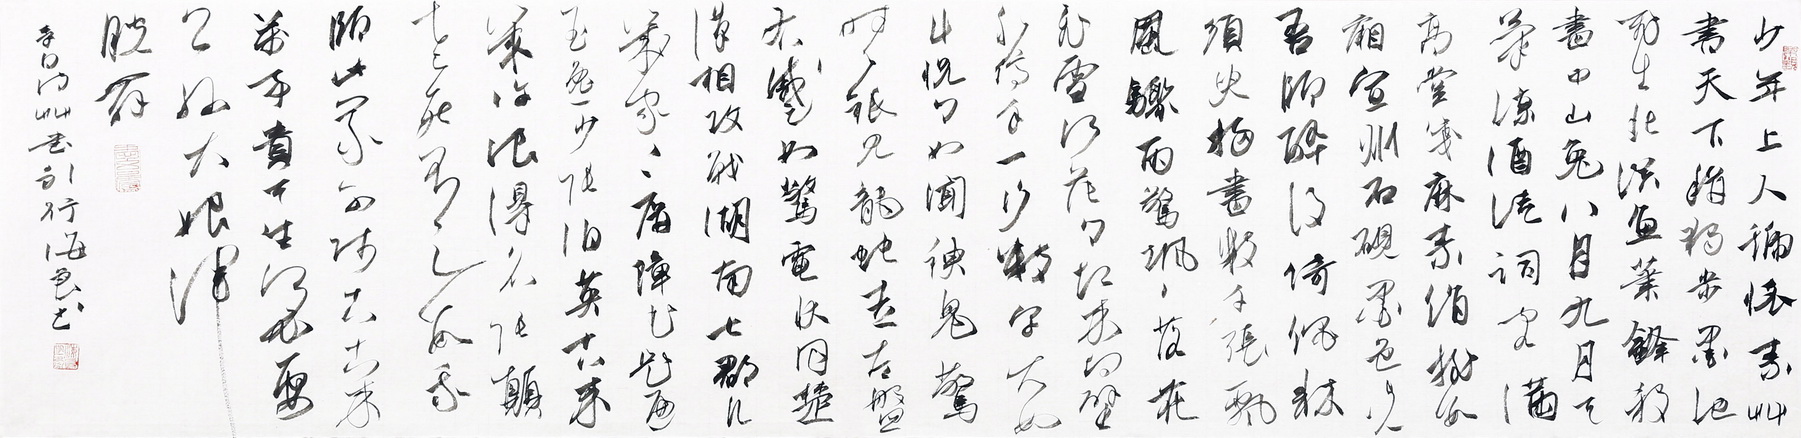 少年上人號懷素艸
書天下稱獨步墨池
飛出北溟魚筆鋒殺
盡中山兔八月九月天
氣涼酒徒詞客滿
高堂箋麻素絹排數
廂宣州石硯墨色光
吾師醉後倚繩床
須臾掃盡數千張飄
風驟雨驚颯〻落花
飛雪何茫〻起來向壁
不停手一行數字大如
斗怳〻如聞神鬼驚
時〻只見龍蛇走左盤
右蹙如驚電狀同楚
漢相攻戰湖南七郡凡
幾家〻〻屏障書題遍
王逸少張伯英古來
幾許浪得名張顛
老死不足數我
師此義不師古古來
萬事貴天生何必要
公孫大娘渾
脫舞
李白詩艸書歌行海書